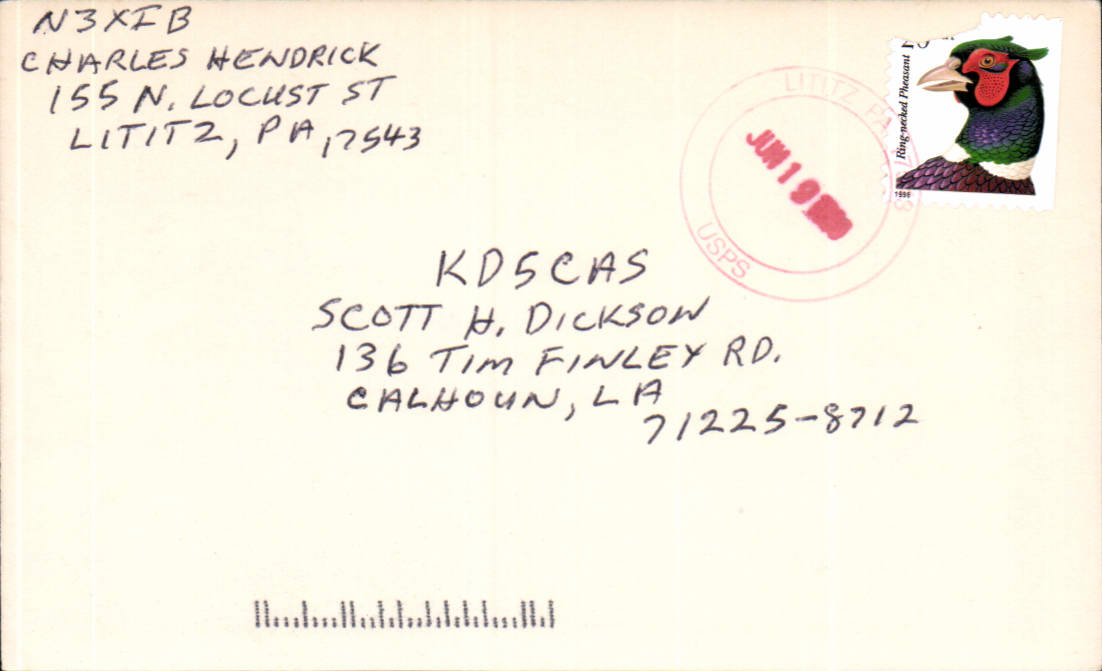 N3XIB
CHARLES HENDRICK
155 N. LOCUST ST
LITITZ, PA, 17543
LITITZ PA
JUN 19
USPS
Ring-necked Pheasant
1998
KD5CAS
SCOTT H. DICKSON
136 TIM FINLEY RD.
CALHOUN, LA
71225-8712